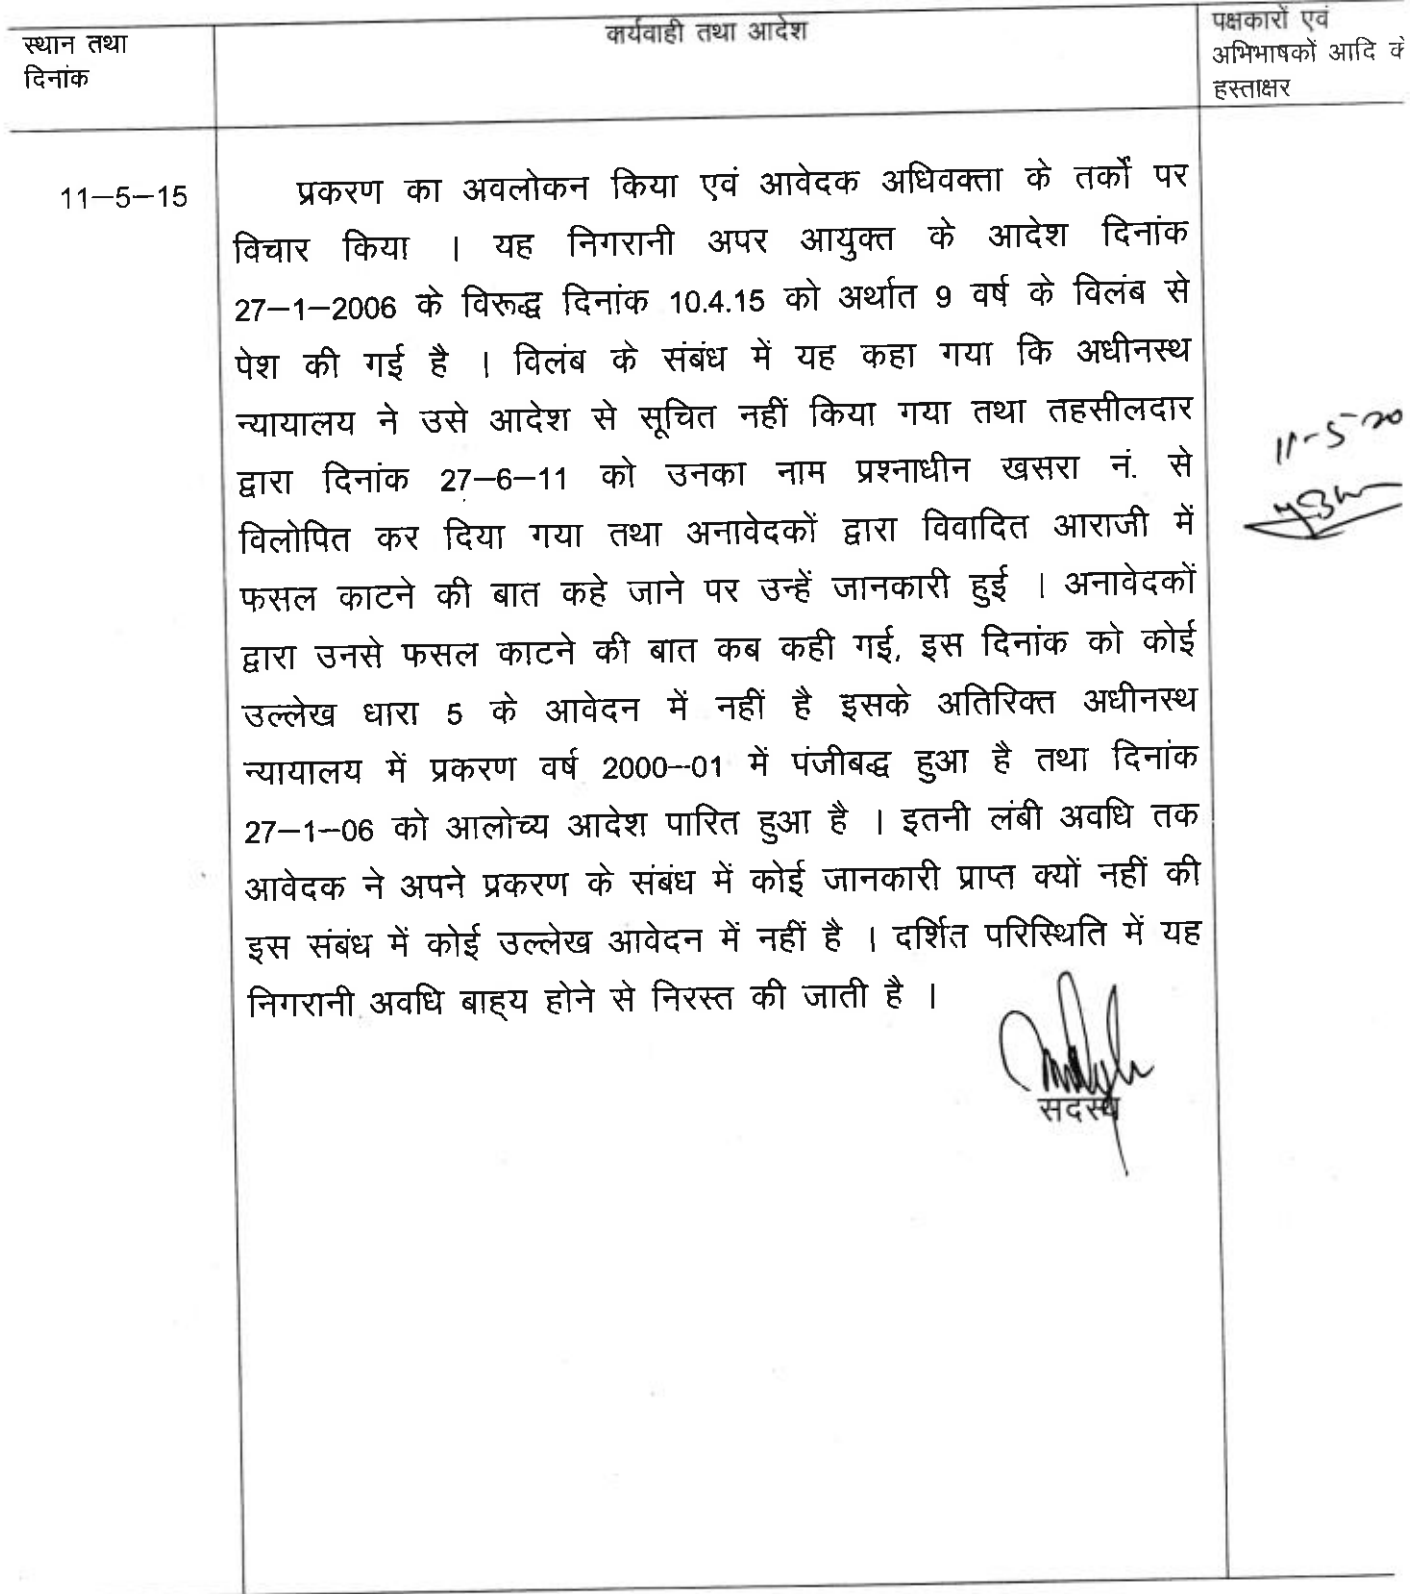 स्थान तथा
दिनांक
कार्यवाही तथा आदेश
पक्षकारों एवं
अभिभाषकों आदि के
हस्ताक्षर
11–5–15
प्रकरण का अवलोकन किया एवं आवेदक अधिवक्ता के तर्कों पर
विचार किया । यह निगरानी अपर आयुक्त के आदेश दिनांक
27–1–2006 के विरूद्ध दिनांक 10.4.15 को अर्थात 9 वर्ष के विलंब से
पेश की गई है । विलंब के संबंध में यह कहा गया कि अधीनस्थ
न्यायालय ने उसे आदेश से सूचित नहीं किया गया तथा तहसीलदार
द्वारा दिनांक 27–6–11 को उनका नाम प्रश्नाधीन खसरा नं. से
विलोपित कर दिया गया तथा अनावेदकों द्वारा विवादित आराजी में
फसल काटने की बात कहे जाने पर उन्हें जानकारी हुई । अनावेदकों
द्वारा उनसे फसल काटने की बात कब कही गई, इस दिनांक को कोई
उल्लेख धारा 5 के आवेदन में नहीं है इसके अतिरिक्त अधीनस्थ
न्यायालय में प्रकरण वर्ष 2000–01 में पंजीबद्ध हुआ है तथा दिनांक
27–1–06 को आलोच्य आदेश पारित हुआ है । इतनी लंबी अवधि तक
आवेदक ने अपने प्रकरण के संबंध में कोई जानकारी प्राप्त क्यों नहीं की
इस संबंध में कोई उल्लेख आवेदन में नहीं है । दर्शित परिस्थिति में यह
निगरानी अवधि बाह्य होने से निरस्त की जाती है ।
सदस्य
11-5-20